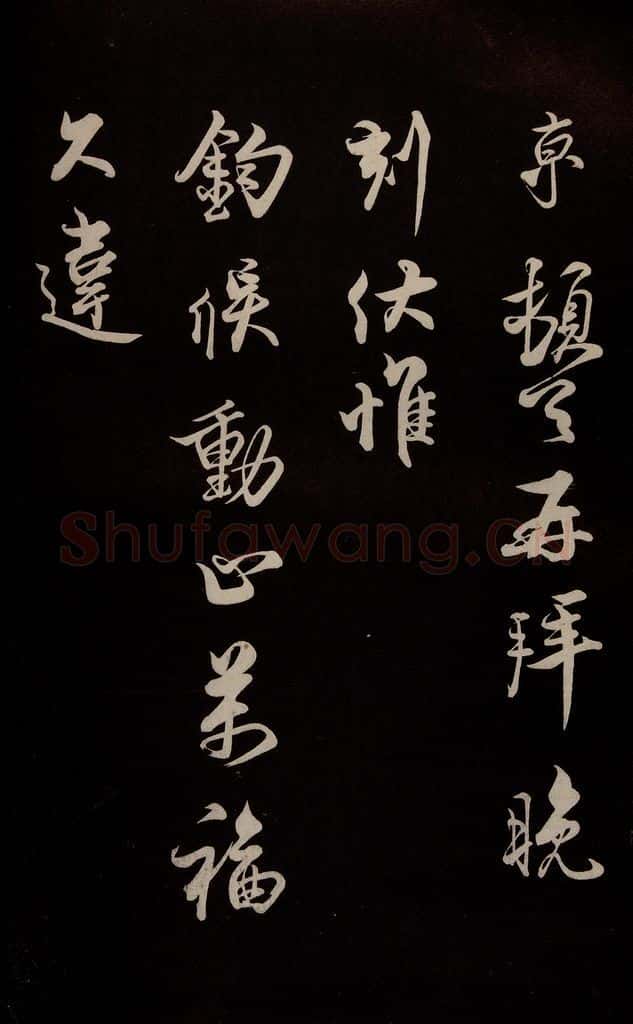 京頓首再拜晚
刻伏惟
鈞候動止萬福
久違
Shufawang.cn